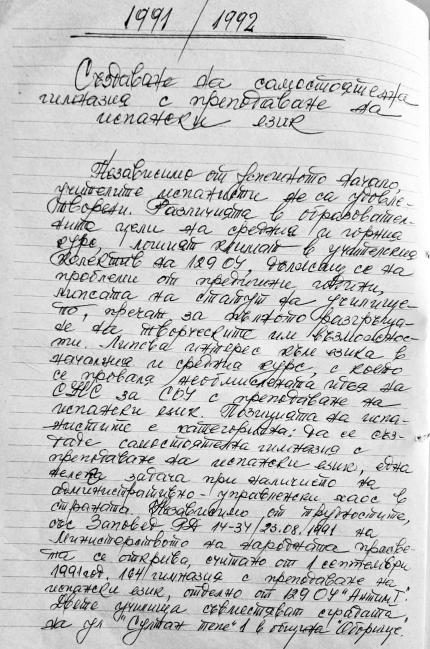 1991 / 1992
Създаване на самостоятелна
гимназия с преподаване на
испански език
Независимо от успешното начало,
учителите испанисти не са удовле-
творени. Различията в образовател-
ните цели на средния и горния
курс, лошият климат в учителския
колектив на 129 ОУ, дължащ се на
проблеми от предишни години,
липсата на статут на училище-
то, пречат за пълното разгръща-
не на творческите им възможнос-
ти. Липсва интерес към езика в
началния и средния курс, с което
се проваля необмислената идея на
за СОУ с преподаване на
испански език. Позицията на испа-
нистите е категорична: да се съз-
даде самостоятелна гимназия с
преподаване на испански език, една
нелека задача при наличието на
административно-управленски хаос в
страната. Независимо от трудностите,
със Заповед РД 14-34/23.08.1991 на
Министерството на народната просве-
та се открива, считано от 1 септември
1991 год. 164 гимназия с преподаване на
испански език, отделно от 129 ОУ "Антим I".
Двете училища съвместяват сградата
на ул "Султан тепе" 1 в община "Оборище".